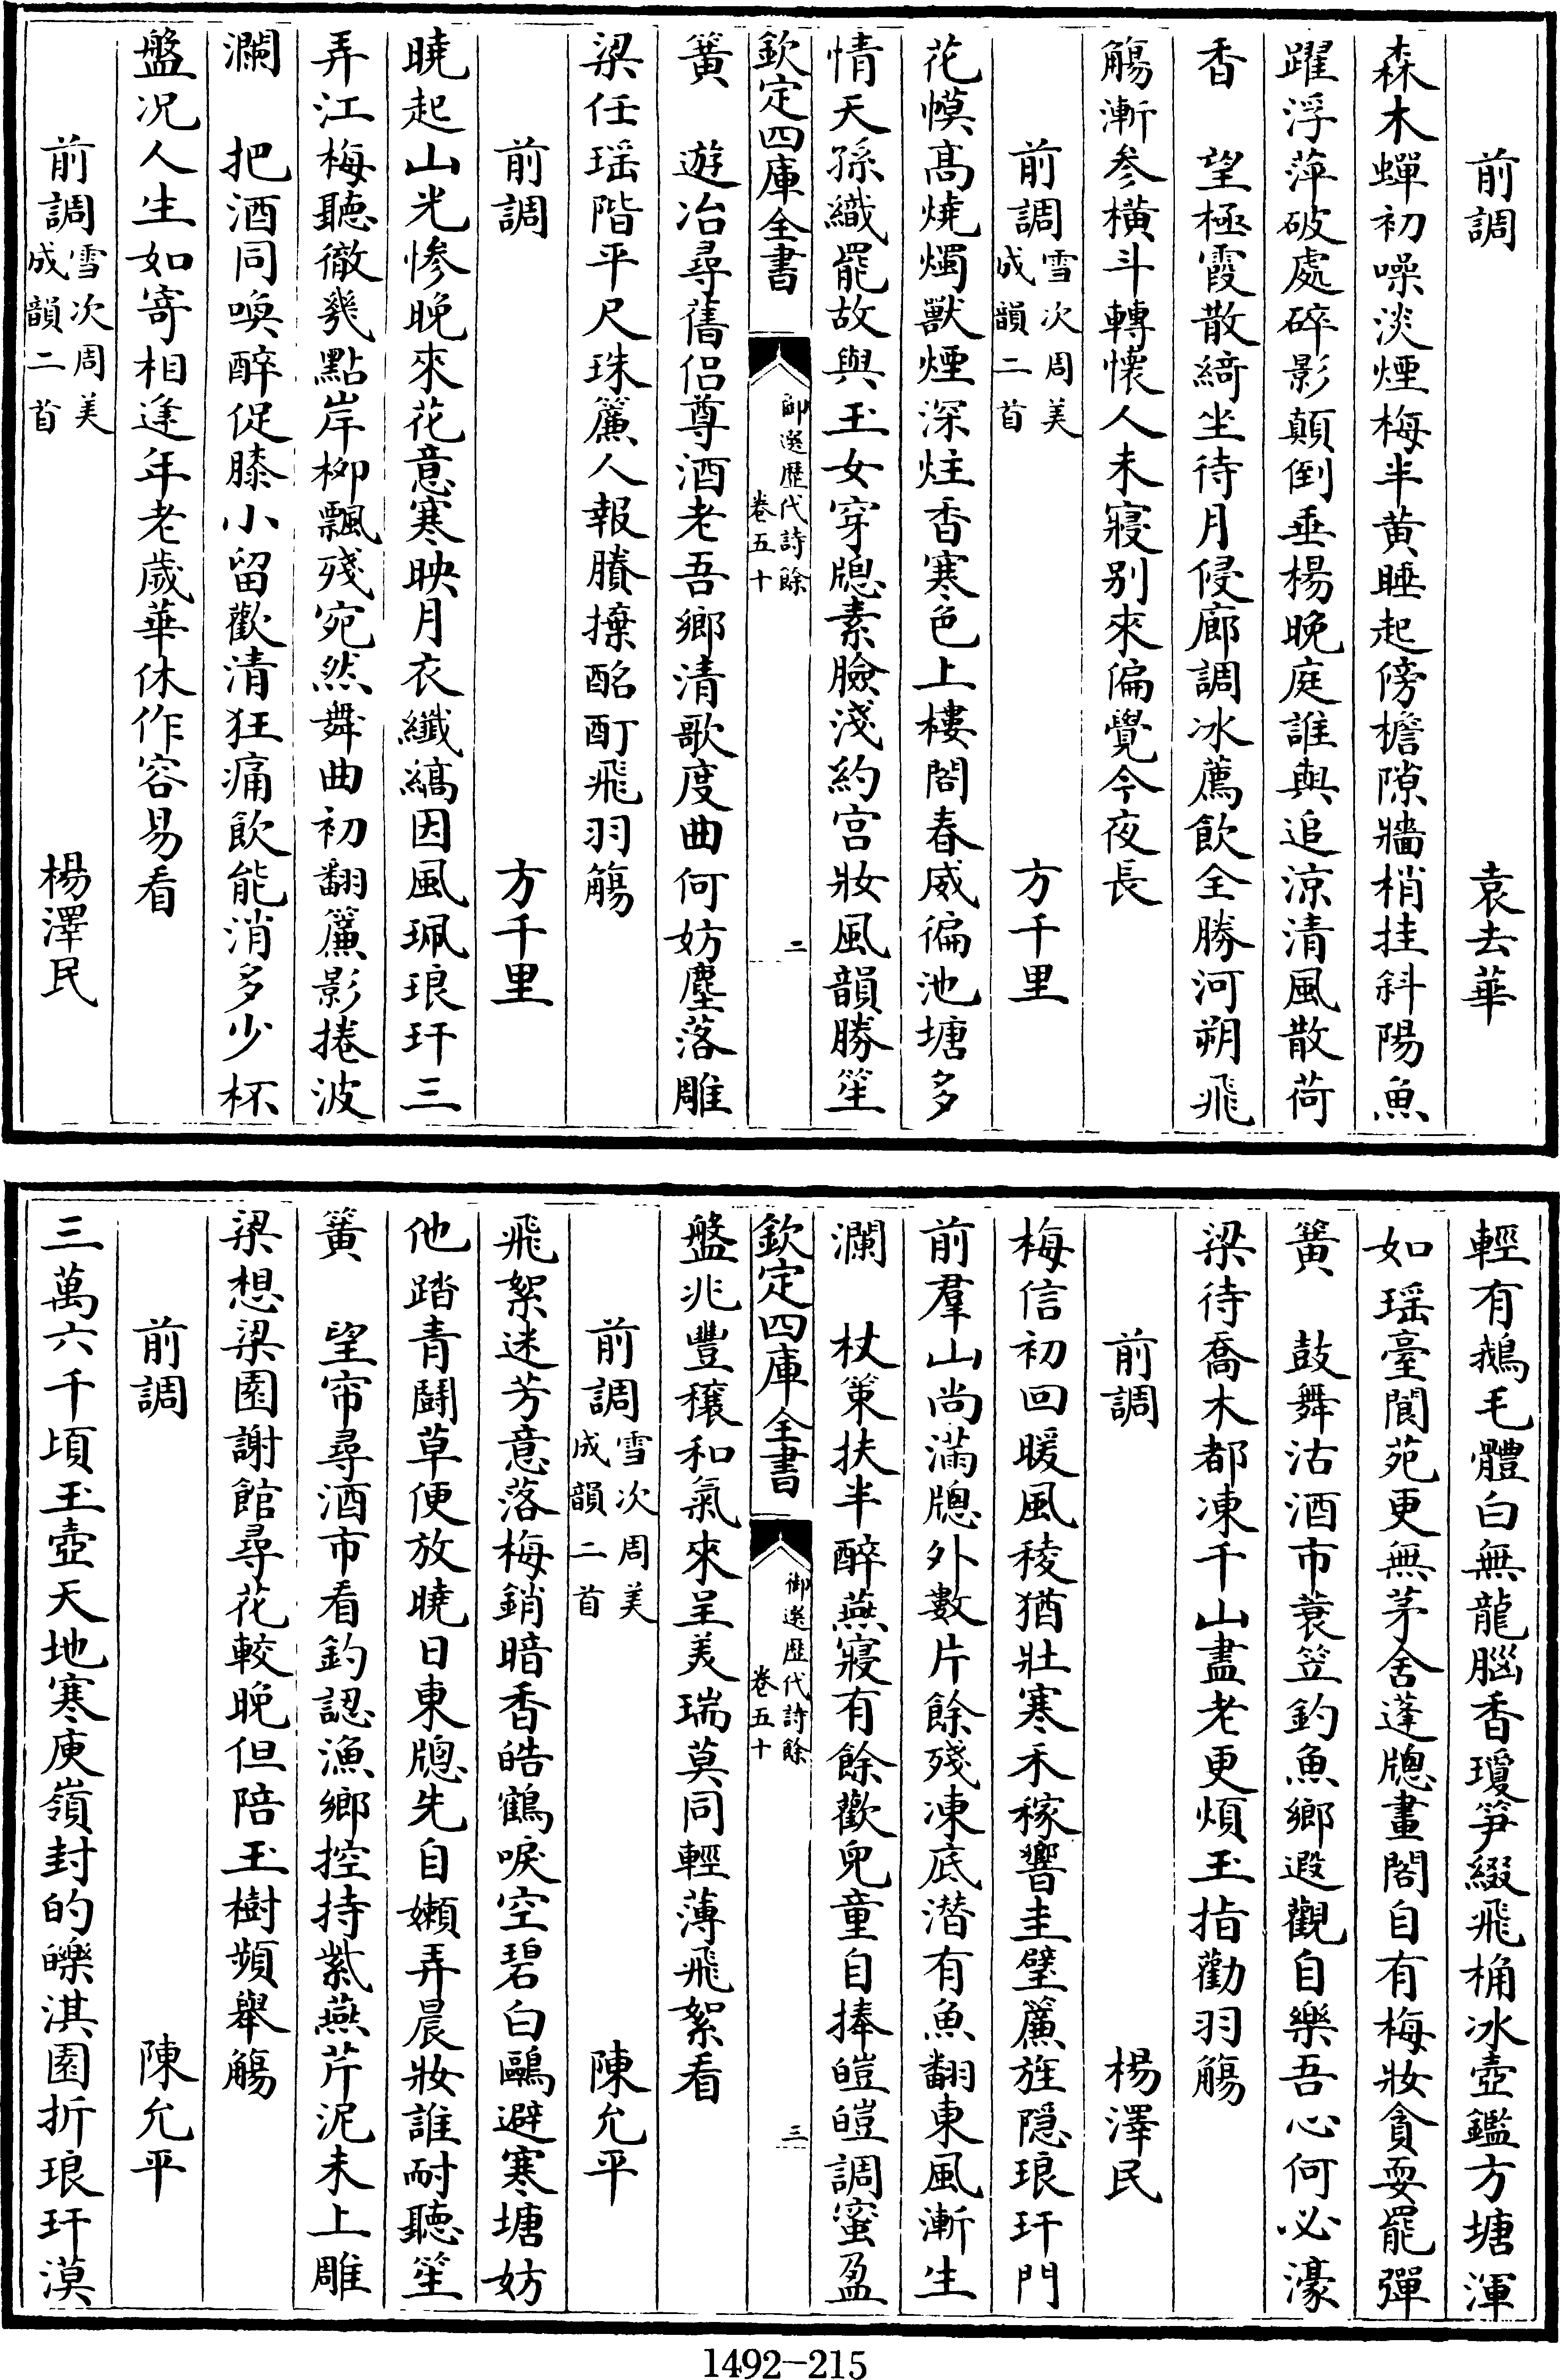 前調　袁去華
森木蟬初噪淡煙梅半黄睡起傍檐隙牆梢挂斜陽魚
躍浮萍破處碎影顛倒垂楊晚庭誰與追涼清風散荷
香　望極霞散綺坐待月侵廊調冰薦飲全勝河朔飛
觴漸參横斗轉懷人未寢别來偏覺今夜長
前調雪次周美成韻二首　方千里
花幙高燒燭獸煙深炷香寒色上樓閣春威徧池塘多
情天孫織罷故與玉女穿牕素臉淺約宫妝風韻勝笙
欽定四庫全書　御選歷代詩餘卷五十　二
簧　遊冶尋舊侣尊酒老吾鄉清歌度曲何妨塵落雕
梁任瑶階平尺珠簾人報賸搡酩酊飛羽觴
前調　方千里
曉起山光慘晚來花意寒映月衣纖縞因風珮琅玕三
弄江梅聽徹幾點岸栁飄殘宛然舞曲初翻簾影捲波
瀾　把酒同喚醉促膝小留歡清狂痛飲能消多少杯
盤况人生如寄相逢年老歲華休作容易看
前調雪次周美成韻二首　楊澤民
輕有鵝毛體白無龍腦香瓊笋綴飛桷冰壺鑑方塘渾
如瑶臺閬苑更無茅舍蓬牕畫閣自有梅妝貪耍罷彈
簧　鼓舞沽酒市蓑笠釣魚鄉遐觀自樂吾心何必濠
梁待喬木都凍千山盡老更煩玉指勸羽觴
前調　楊澤民
梅信初回暖風稜猶壯寒禾稼響圭璧簾旌隠琅玕門
前羣山尚滿牕外數片餘殘凍底潛有魚翻東風漸生
瀾　杖策扶半醉燕寢有餘歡兒童自捧皚皚調蜜盈
欽定四庫全書　御選歷代詩餘卷五十　三
盤兆豐穰和氣來呈美瑞莫同輕薄飛絮看
前調雪次周美成韻二首　陳允平
飛絮迷芳意落梅銷暗香皓鶴唳空碧白鷗避寒塘妨
他踏青鬬草便放曉日東牕先自嬾弄晨妝誰耐聽笙
簧　望帘尋酒市看釣認漁鄉控持紫燕芹泥未上雕
梁想梁園謝館尋花較晚但陪玉樹頻舉觴
前調　陳允平
三萬六千頃玉壺天地寒庾嶺封的皪淇園折琅玕漠
1492-215